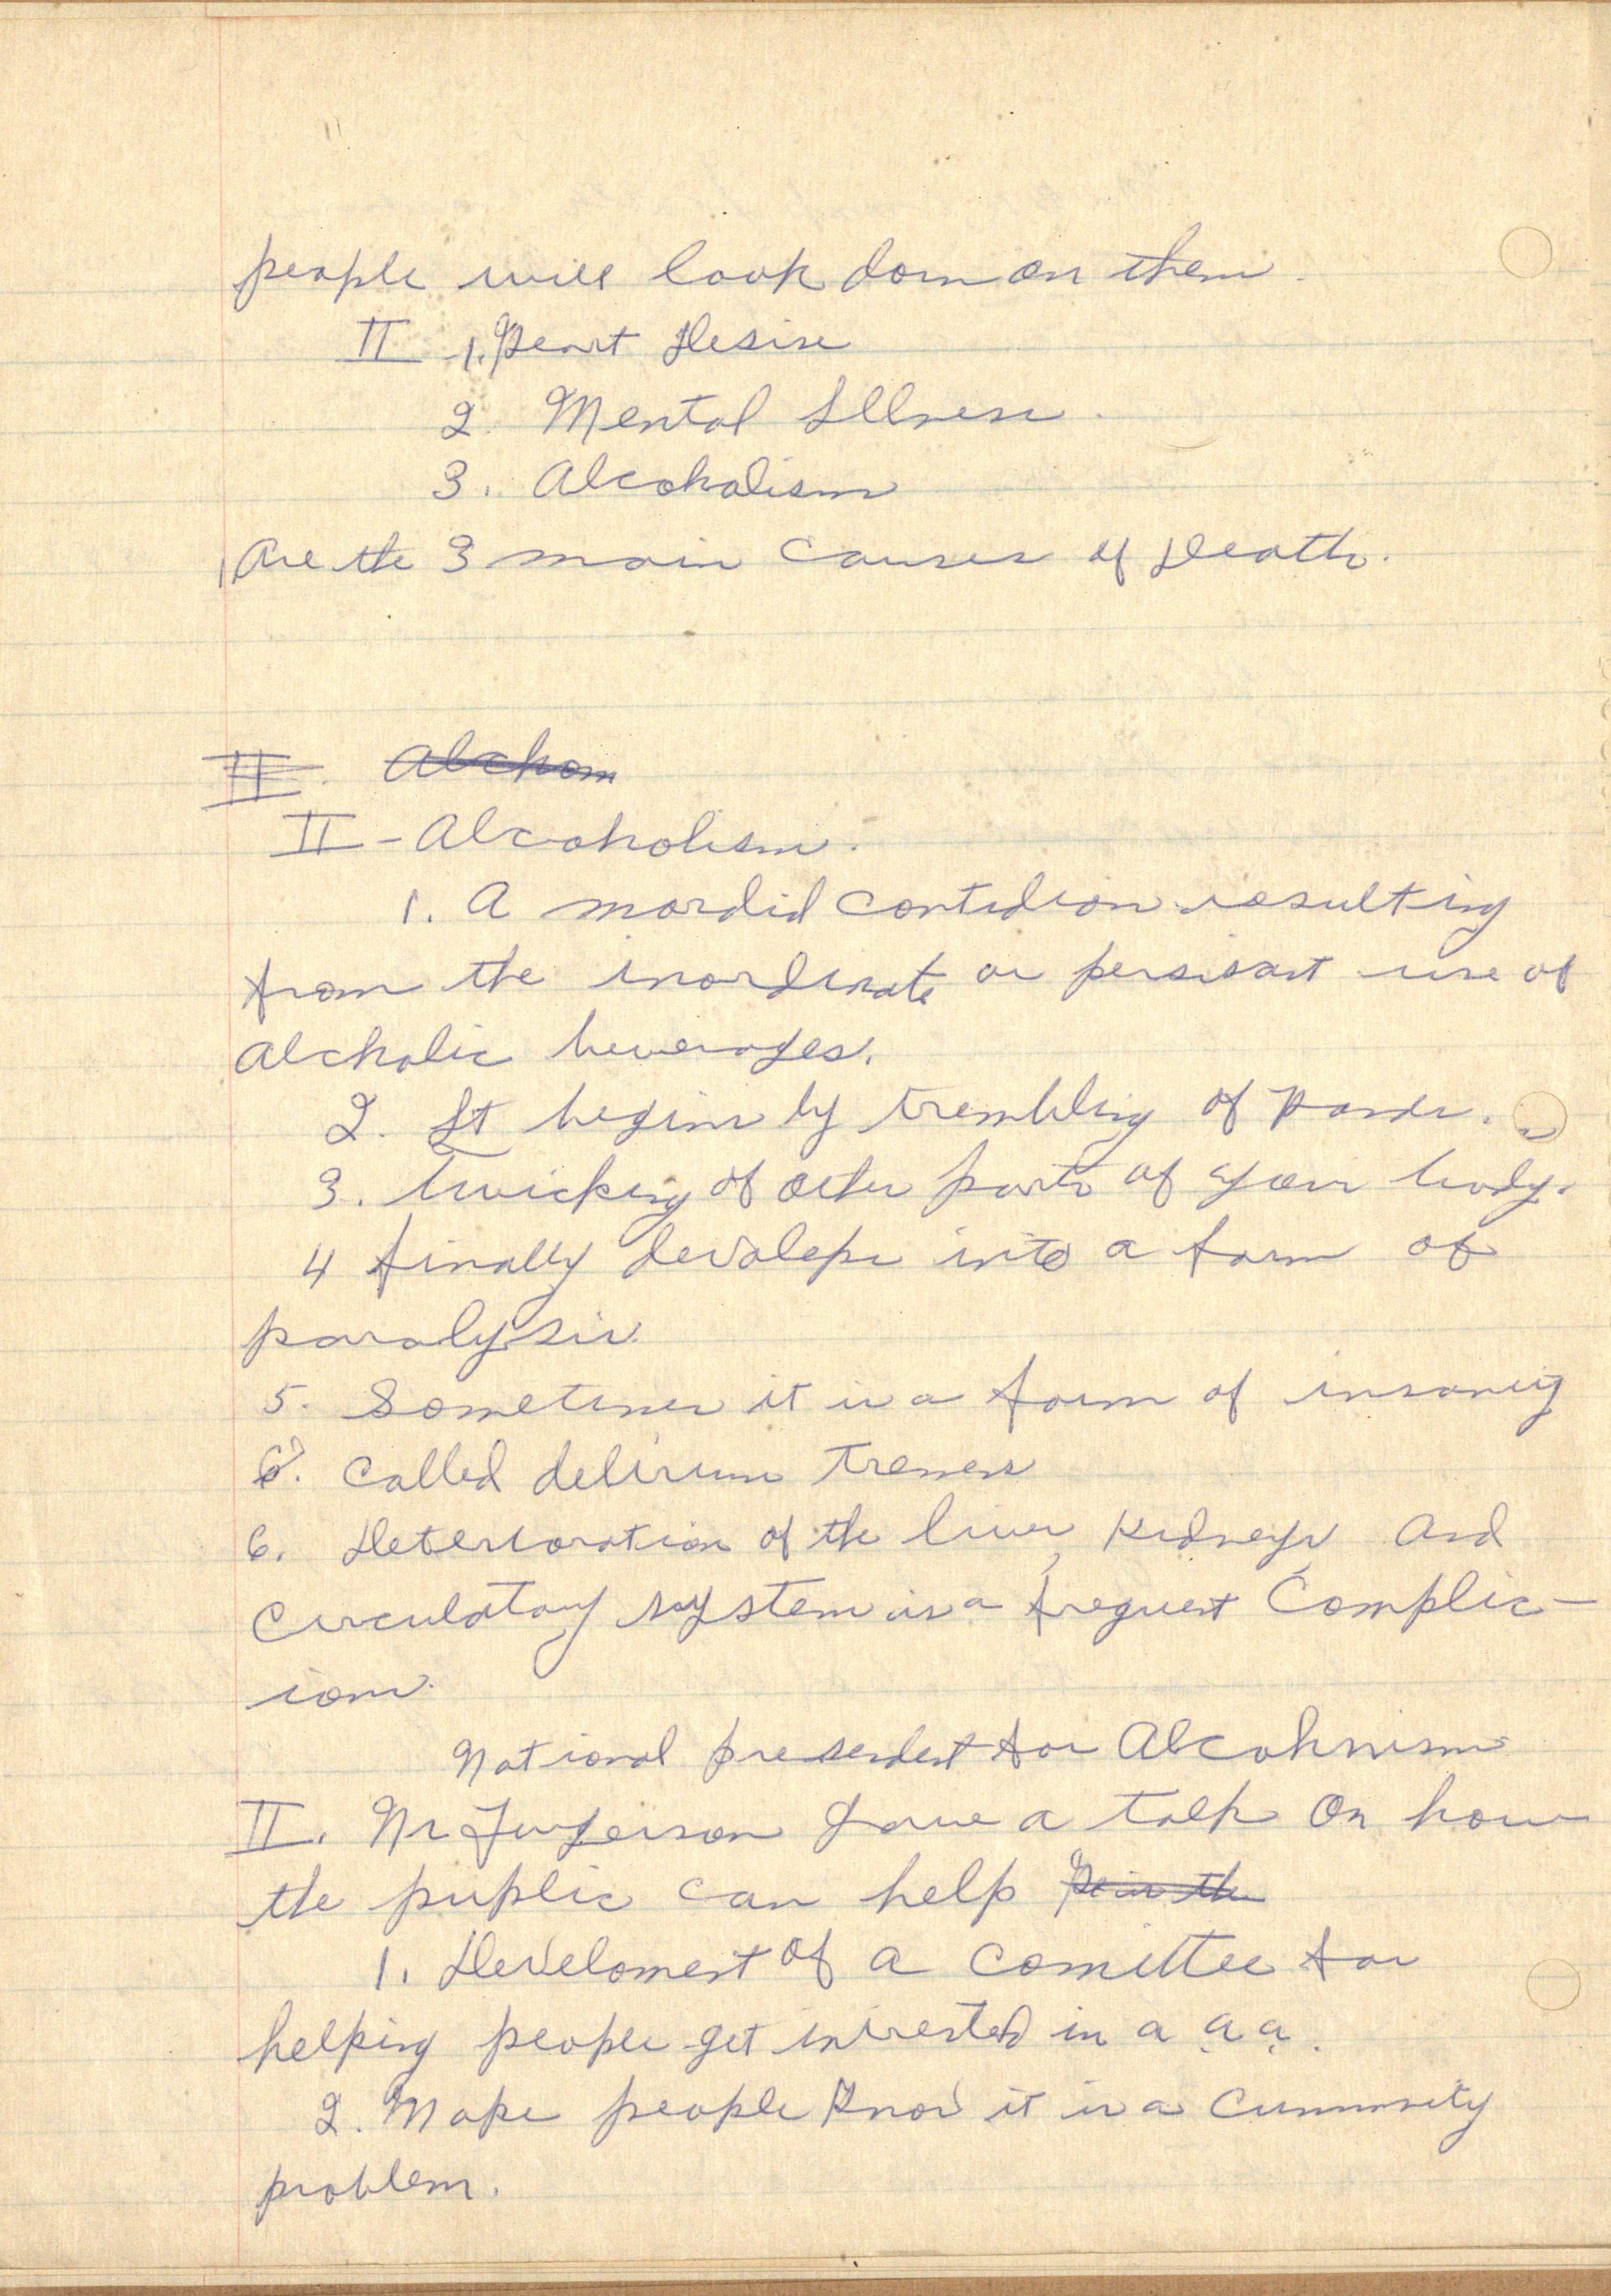 people will look down on them.
II 1. Heart Desise
2. Mental Illness.
3. Alcoholism
Are the 3 main causes of Death.
II. Alchom
II - Alcoholism.
1. A mordid contidion resulting
from the inordinate or persisant use of
alcholic beverages.
2. It begins by trembling of hands.
3. twicking of other parts of your body.
4 finally devoleps into a form of
paralysis.
5. Sometimes it is a form of insanity
6. called delirium tremens
6. Deterioration of the liver, Kidneys, and
circulatory system is a frequent Complic-
ions.
National presendent for Alcohnism
II. Mr Furgerson gave a talk on how
the puplic can help
1. Develoment of a comittee for
helping people get intrested in a a.a.
2. Make people know it is a Cummunity
problem.